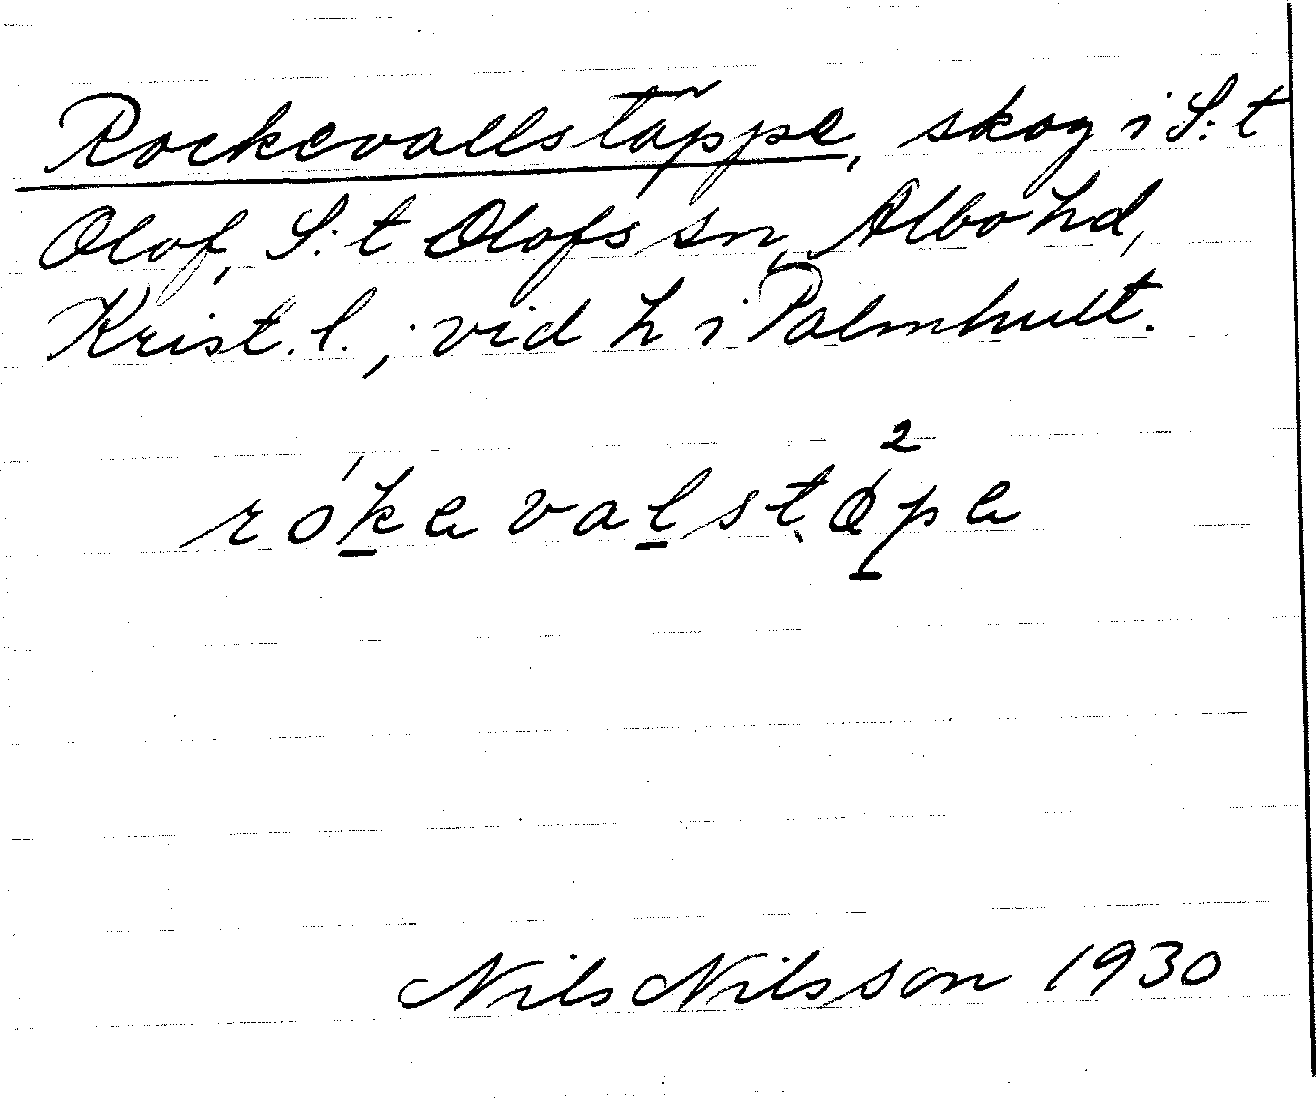 Rockevallstäppe, skog i S:t
Olof, S:t Olofs sn, Albo hd,
Krist. l.; vid h i Palmhult.
rókavalstäpa
2
Nils Nilsson 1930